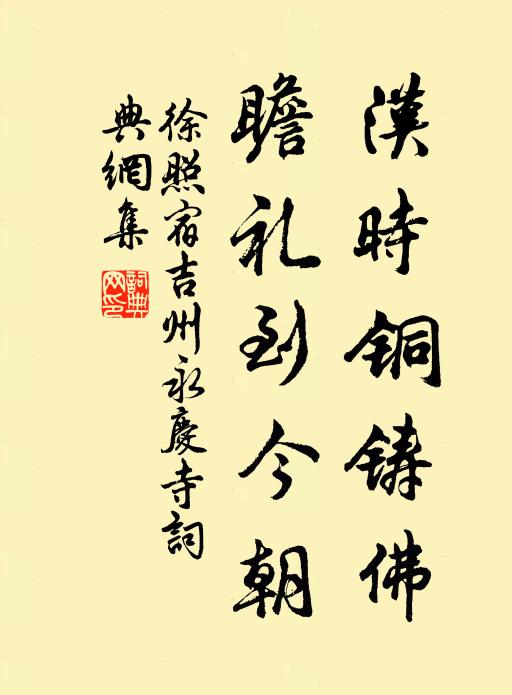 漢時铜铸佛
瞻礼到今朝
徐照宿吉州永慶寺詞
典網集
詞典網印